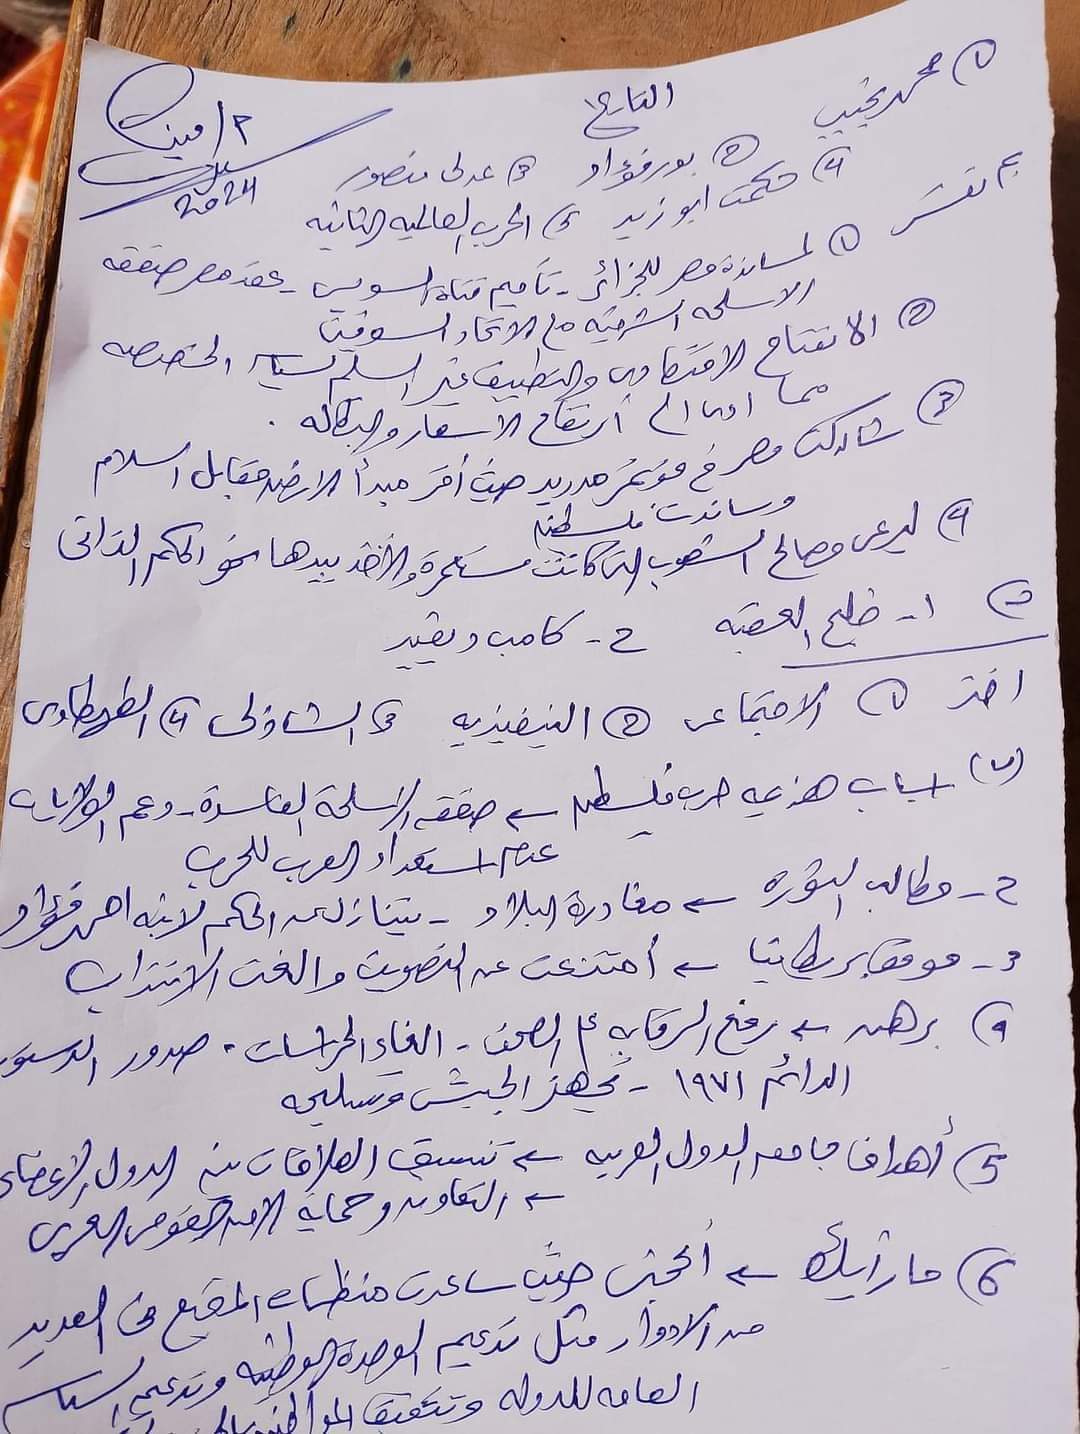 التاريخ
٢/ مينا
2024
① محمد نجيب ② بور فؤاد ③ عدلى منصور
④ حكمت ابو زيد ⑤ الحرب العالميه الثانيه
ب تفسر ① لمساندة مصر للجزائر - تأميم قناة السويس - عقد مصر صفقه
الاسلحه الشرقيه مع الاتحاد السوفيتى
② الانفتاح الاقتصادى والتطبيق غير السليم لسياسه الخصخصه
مما ادى الى أرتفاع الأسعار والبطاله .
③ شاركت مصر فى مؤتمر مدريد حيث أقر مبدأ الارض مقابل السلام
وساندت فلسطين
④ ليرعى مصالح الشعوب التى كانت مستعمرة والأخذ بيدها نحو الحكم الذاتى
١- خليج العقبه ٢- كامب ديفيد
اختر ① الاجتماعى ② التنفيذيه ③ الشاذلى ④ الطهطاوى
(ب) اسباب هزيمه حرب فلسطين ← صفقه الاسلحة الفاسدة - دعم الولايات
عدم استعداد العرب للحرب
٢- مطالب الثورة ← مغادرة البلاد - يتنازل عن الحكم لابنه احمد فؤاد
٣- موقف بريطانيا ← أمتنعت عن التصويت والغت الانتداب
④ برهن ← رفع الرقابه على الصحف - الغاء الحراسات - صدور الدستور
الدائم ١٩٧١ - تجهيز الجيش وتسليحه
⑤ أهداف جامعه الدول العربيه ← تنسيق العلاقات بين الدول الاعضاء
← التعاون وحماية الامن القومى العربى
⑥ ما رأيك ← أتجنى حيث ساعدت منظمات المجتمع فى العديد
من الادوار مثل تدعيم الوحدة الوطنيه وتدعيم السياسه
العامه للدوله وتحقيق